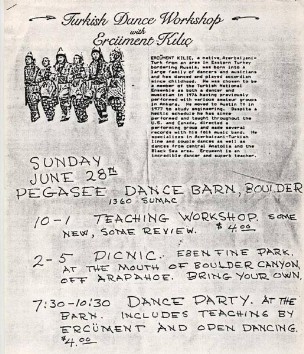 Turkish Dance Workshop
with
Ercüment Kılıç
ERCÜMENT KILIC, a native Azerbaijani
Turk from an area in Eastern Turkey
bordering Russia, was born into a
large family of dancers and musicians
and has danced and played accordion
since childhood. He was chosen to be
a member of the Turkish National
Ensemble as both a dancer and
musician in 1974 having already
performed with various amateur groups
in Ankara. He moved to
in 1977 to study engineering. Despite a
hectic schedule he has since
performed and taught throughout the
U.S. and Canada, directed a
performing group and made several
records with his folk music band. He
specializes in Azerbaijani-Turkish
line and couple dances as well as
dances from central Anatolia and the
Black Sea area. Ercument is an
incredible dancer and superb teacher.
SUNDAY
JUNE 28th
PEGASEE DANCE BARN, BOULDER
1360 SUMAC
10-1 TEACHING WORKSHOP. SOME
NEW, SOME REVIEW. $4.00
2-5 PICNIC. EBEN FINE PARK,
AT THE MOUTH OF BOULDER CANYON,
OFF ARAPAHOE. BRING YOUR OWN.
7:30-10:30 DANCE PARTY. AT THE
BARN. INCLUDES TEACHING BY
ERCÜMENT AND OPEN DANCING.
$4.00